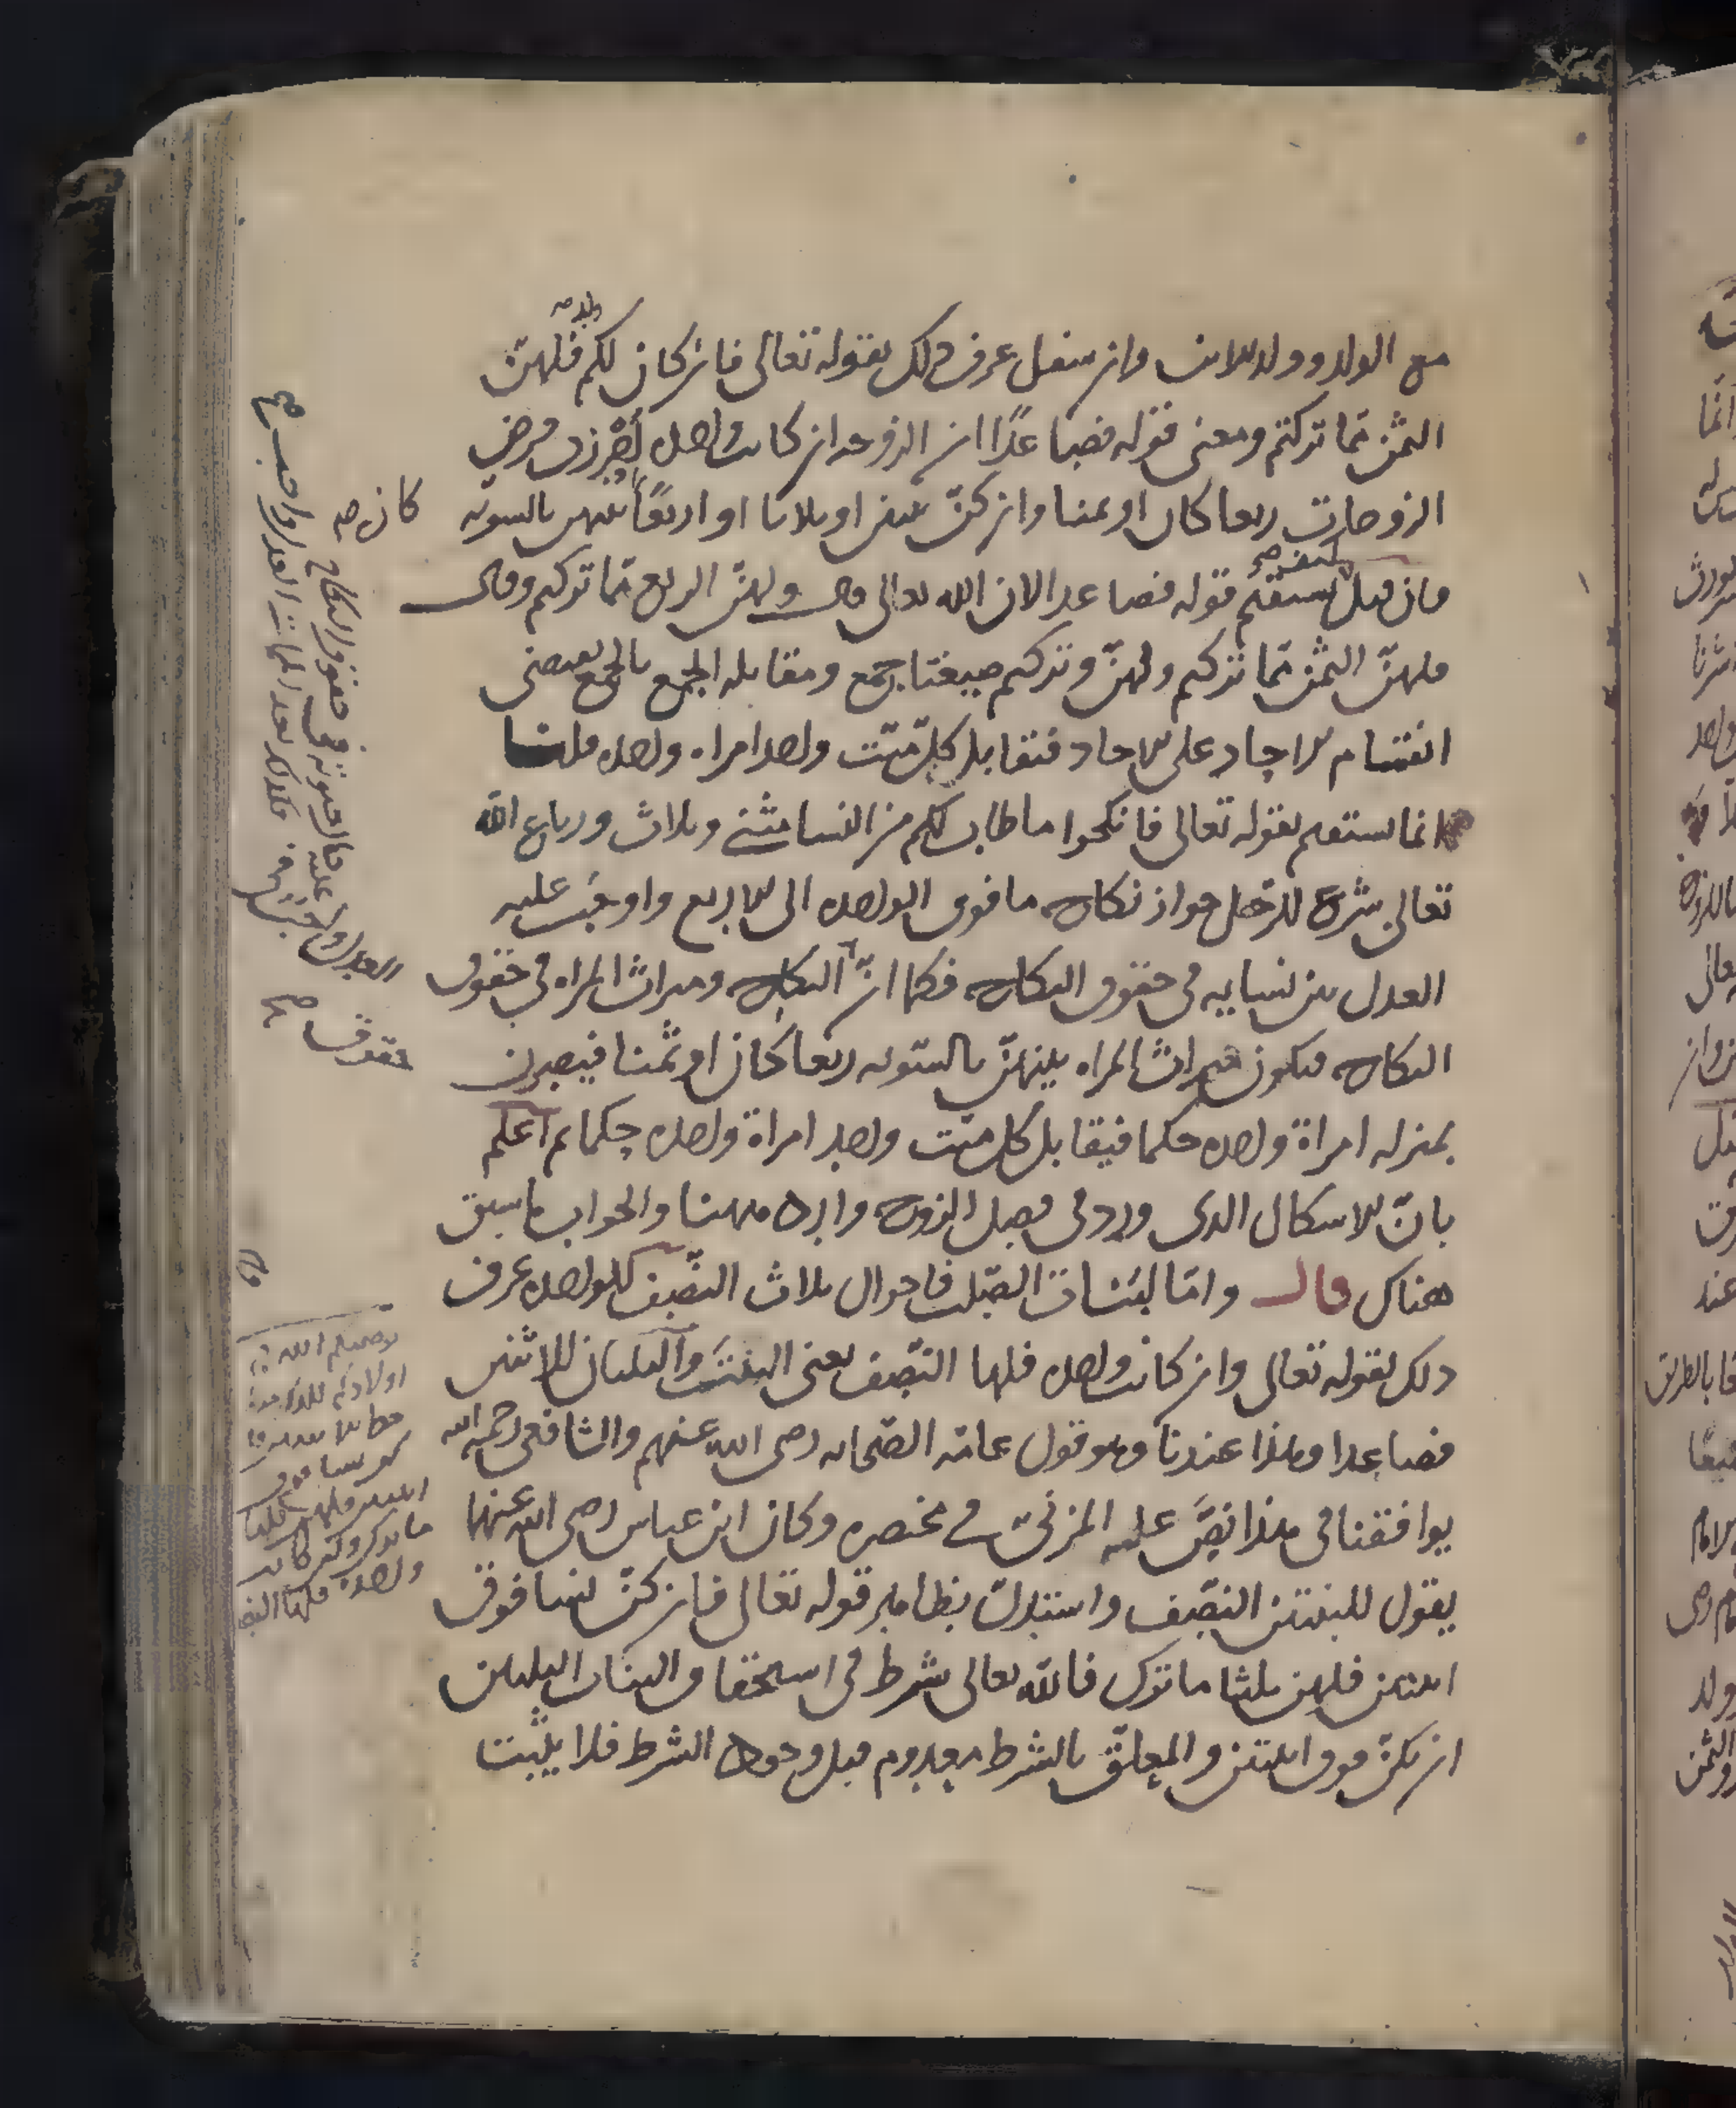 مع الولد وولد الابن وان سفل عرف ذلك بقوله تعالى فان كان لكم ولد فلهن
الثمن مما تركتم ومعنى قوله فصاعدًا ان الزوجة ان كانت واحدة فرض
الزوجات ربعا كان او ثمنا وان كنّ ثنتين او ثلاثا او اربعًا بينهن بالسوية
فان قيل كيف يستقيم قوله فصاعدا لان الله تعالى قال ولهنّ الربع مما تركتم وقال
فلهنّ الثمن مما تركتم ولهنّ وتركتم صيغتا جمع ومقابلة الجمع بالجمع يقتضي
انقسام الآحاد على الآحاد فتقابل كل ميّت واحد امراة واحدة قلنا
انما يستقيم بقوله تعالى فانكحوا ما طاب لكم من النسا مثنى وثلاث ورباع الله
تعالى شرع للرجل جواز نكاح ما فوق الواحدة الى الاربع واوجب عليه
العدل بين نسايه في حقوق النكاح فكما انّ النكاح وميراث المراة في حقوق
النكاح فيكون ميراث المراة بينهنّ بالسّوية ربعا كان او ثمنا فيصرن
بمنزلة امراة واحدة حكما فيقابل كل ميّت واحد امراة واحدة حكما ثم اعلم
بانّ الاشكال الذي ورد في فصل الزوج وارد ههنا والجواب ما سبق
هناك قال وامّا لبنات الصّلب فاحوال ثلاث النصف للواحدة عرف
ذلك بقوله تعالى وان كانت واحدة فلها النّصف يعني البنت والثلثان للاثنين
فصاعدا وهذا عندنا وهو قول عامّة الصّحابة رضي الله عنهم والشافعي رحمه الله
يوافقنا في هذا نصَّ عليه المزنيّ في مختصره وكان ابن عباس رضي الله عنهما
يقول للبنتين النّصف واستدلّ بظاهر قوله تعالى فان كنّ نسا فوق
اثنتين فلهن ثلثا ما ترك فالله تعالى شرط في استحقاق البنات الثلثين
ان يكنّ فوق اثنتين والمعلّق بالشرط معدوم قبل وجود الشرط فلا يثبت
كان صح
حقوق صح
يوصيكم الله في
اولادكم للذكر مثل
حظ الانثيين فا
ن كن نسا فوق
اثنتين فلهن ثلثا
ما ترك وان كانت
واحدة فلها النصف